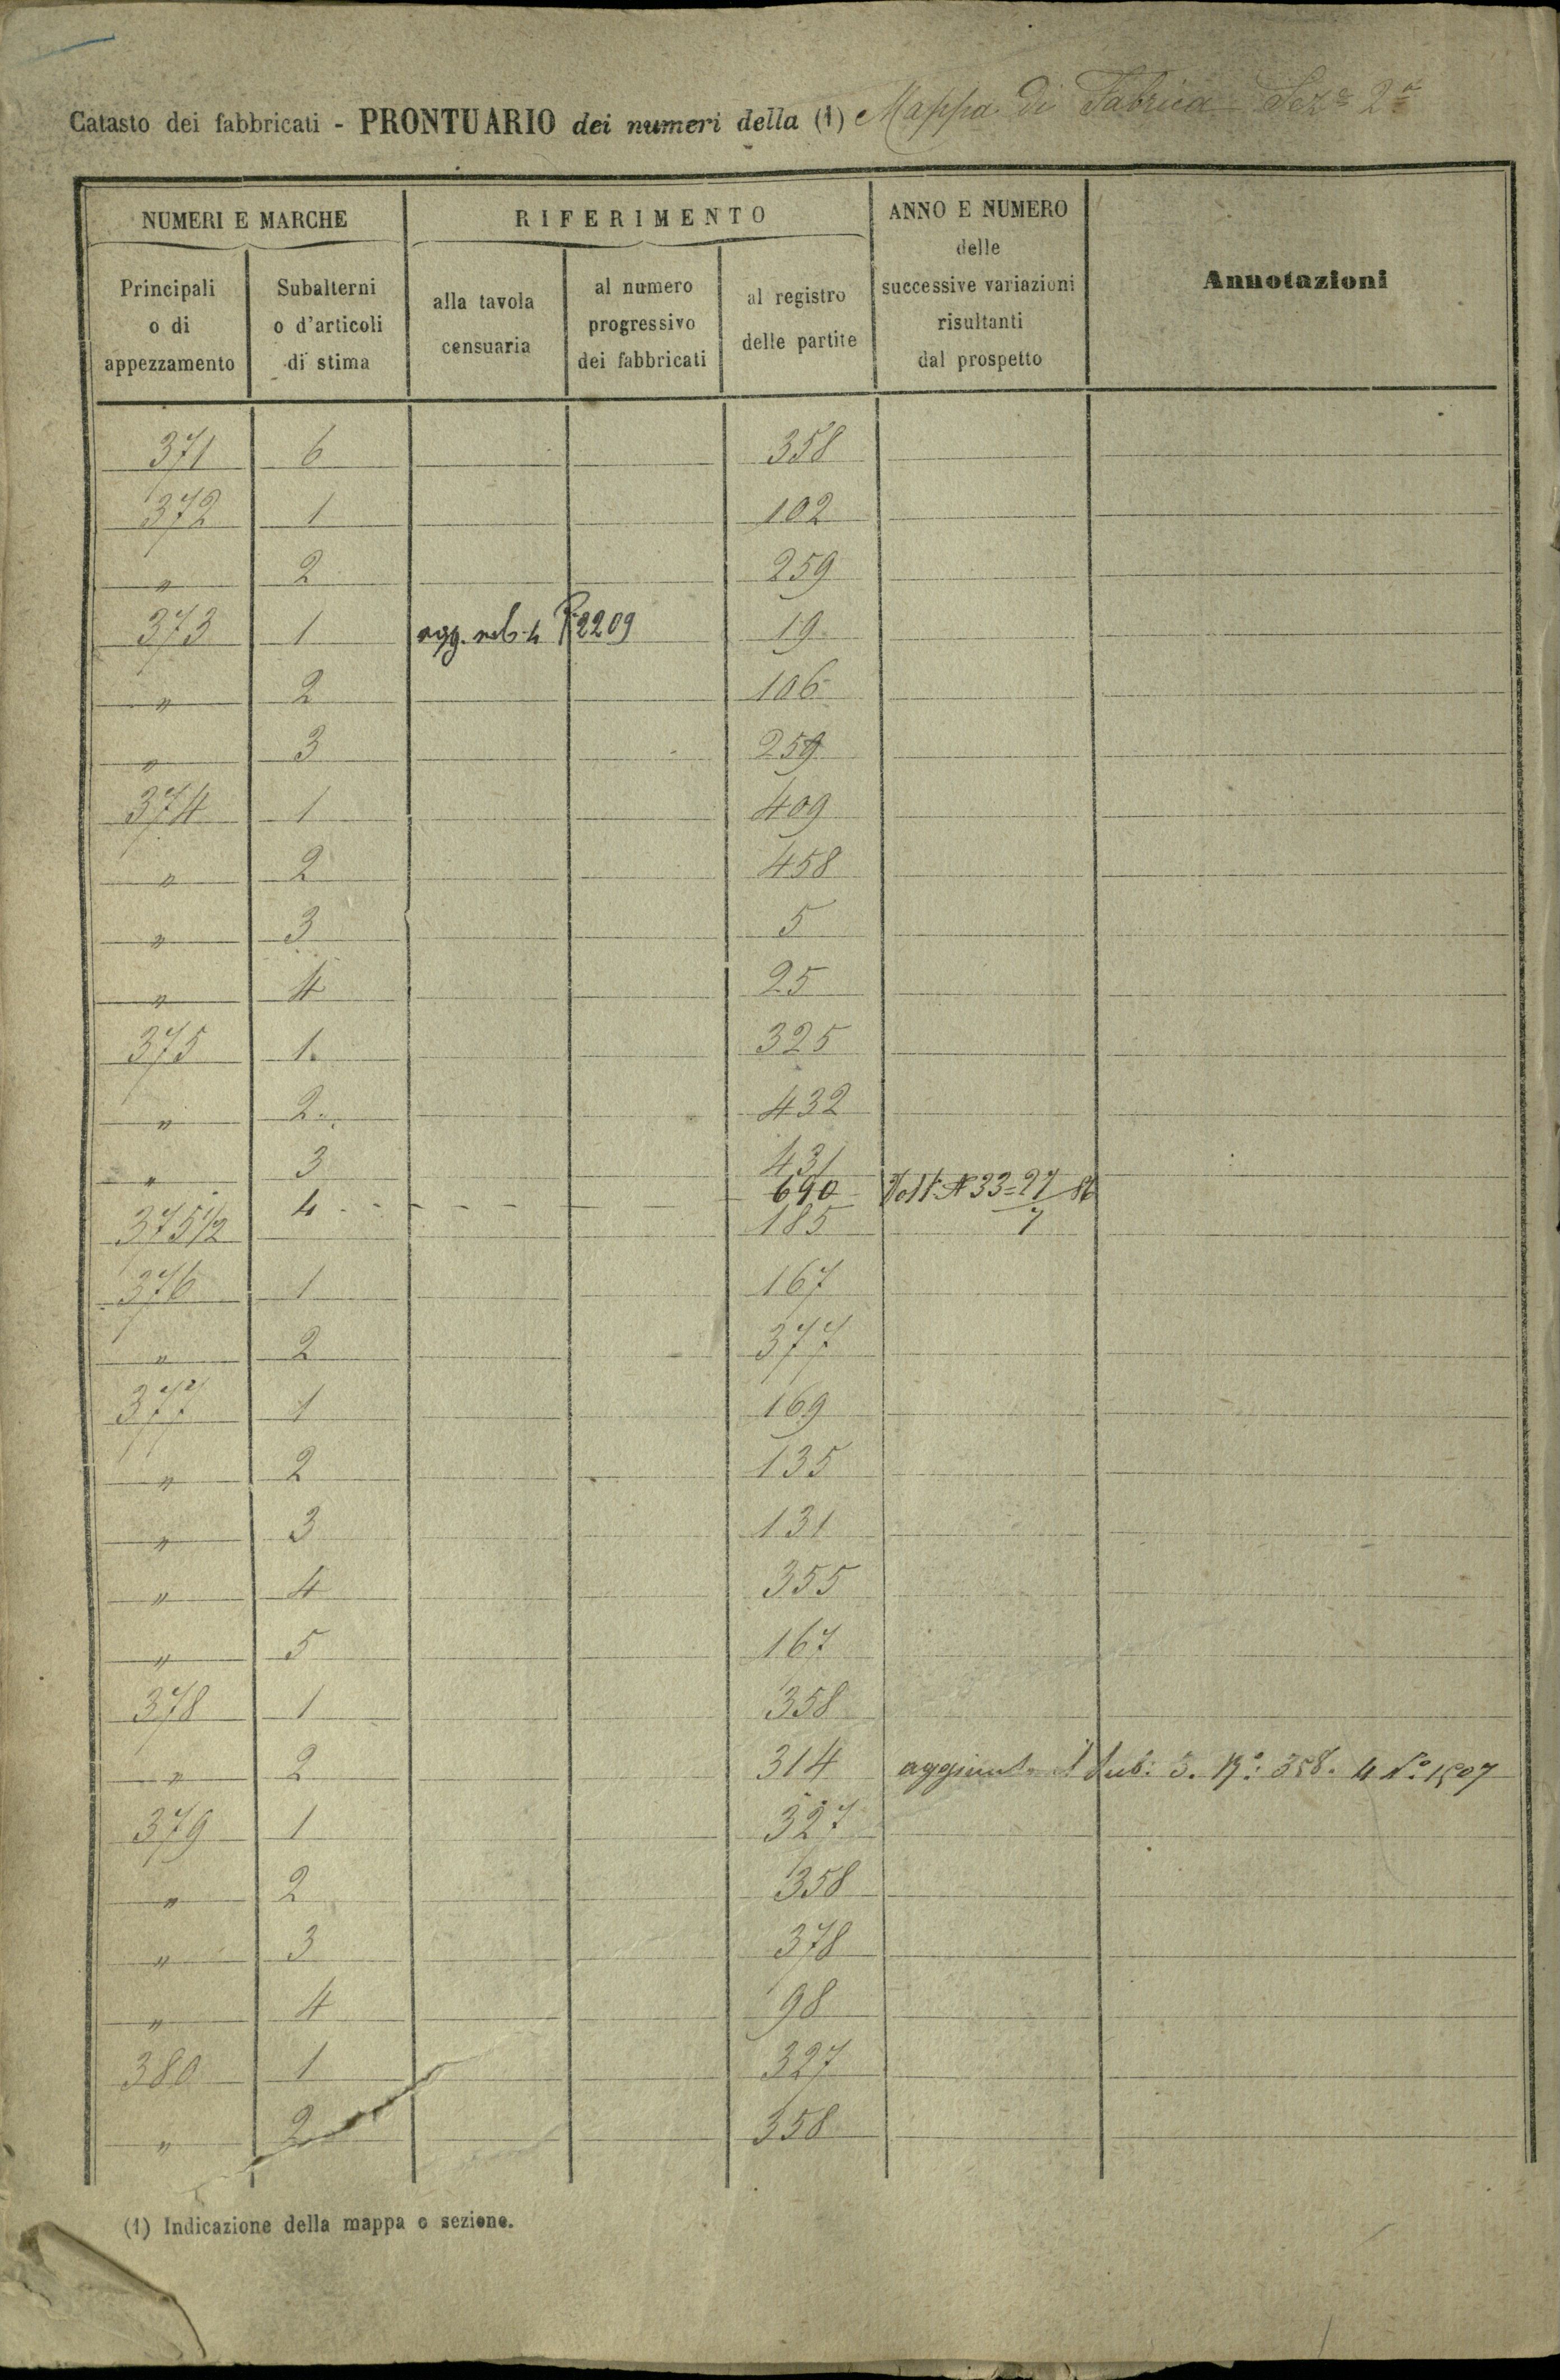 Catasto dei fabbricati - PRONTUARIO dei numeri della (1) Mappa di Fabrica Sez.e 2a
NUMERI E MARCHE
RIFERIMENTO
ANNO E NUMERO
delle
successive variazioni
risultanti
dal prospetto
Annotazioni
Principali
o di
appezzamento
Subalterni
o d'articoli
di stima
alla tavola
censuaria
al numero
progressivo
dei fabbricati
al registro
delle partite
371 6 358
372 1 102
" 2 259
373 1 agg. sub. 4 P. 2209 19
" 2 106
" 3 259
374 1 409
" 2 458
" 3 5
" 4 25
375 1. 325
" 2. 432
" 3 431
4 - - - - - - 690 N 33=27 86
375 1/2 185 7
376 1 167
" 2 377
377 1 169
" 2 135
" 3 131
" 4 355
" 5 167
378 1 358
" 2 314 aggiunto il sub: 3. 358. 4 N.o 1507
379 1 327
" 2 358
" 3 378
" 4 98
380 1 327
" 2 358
(1) Indicazione della mappa o sezione.